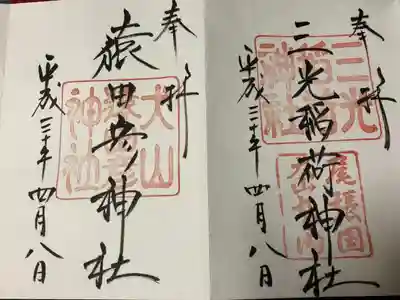 奉拝
三光稲荷神社
平成三十年四月八日
三光
稲荷
神社
尾張国
奉拝
猿田彦神社
平成三十年四月八日
犬山
猿田彦
神社